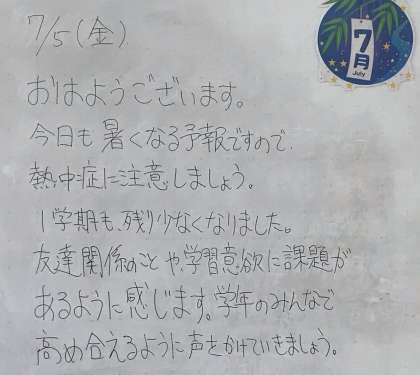 7/5(金)
7月
July
おはようございます。
今日も暑くなる予報ですので、
熱中症に注意しましょう。
1学期も、残り少なくなりました。
友達関係のことや、学習意欲に課題が
あるように感じます。学年のみんなで
高め合えるように声をかけていきましょう。